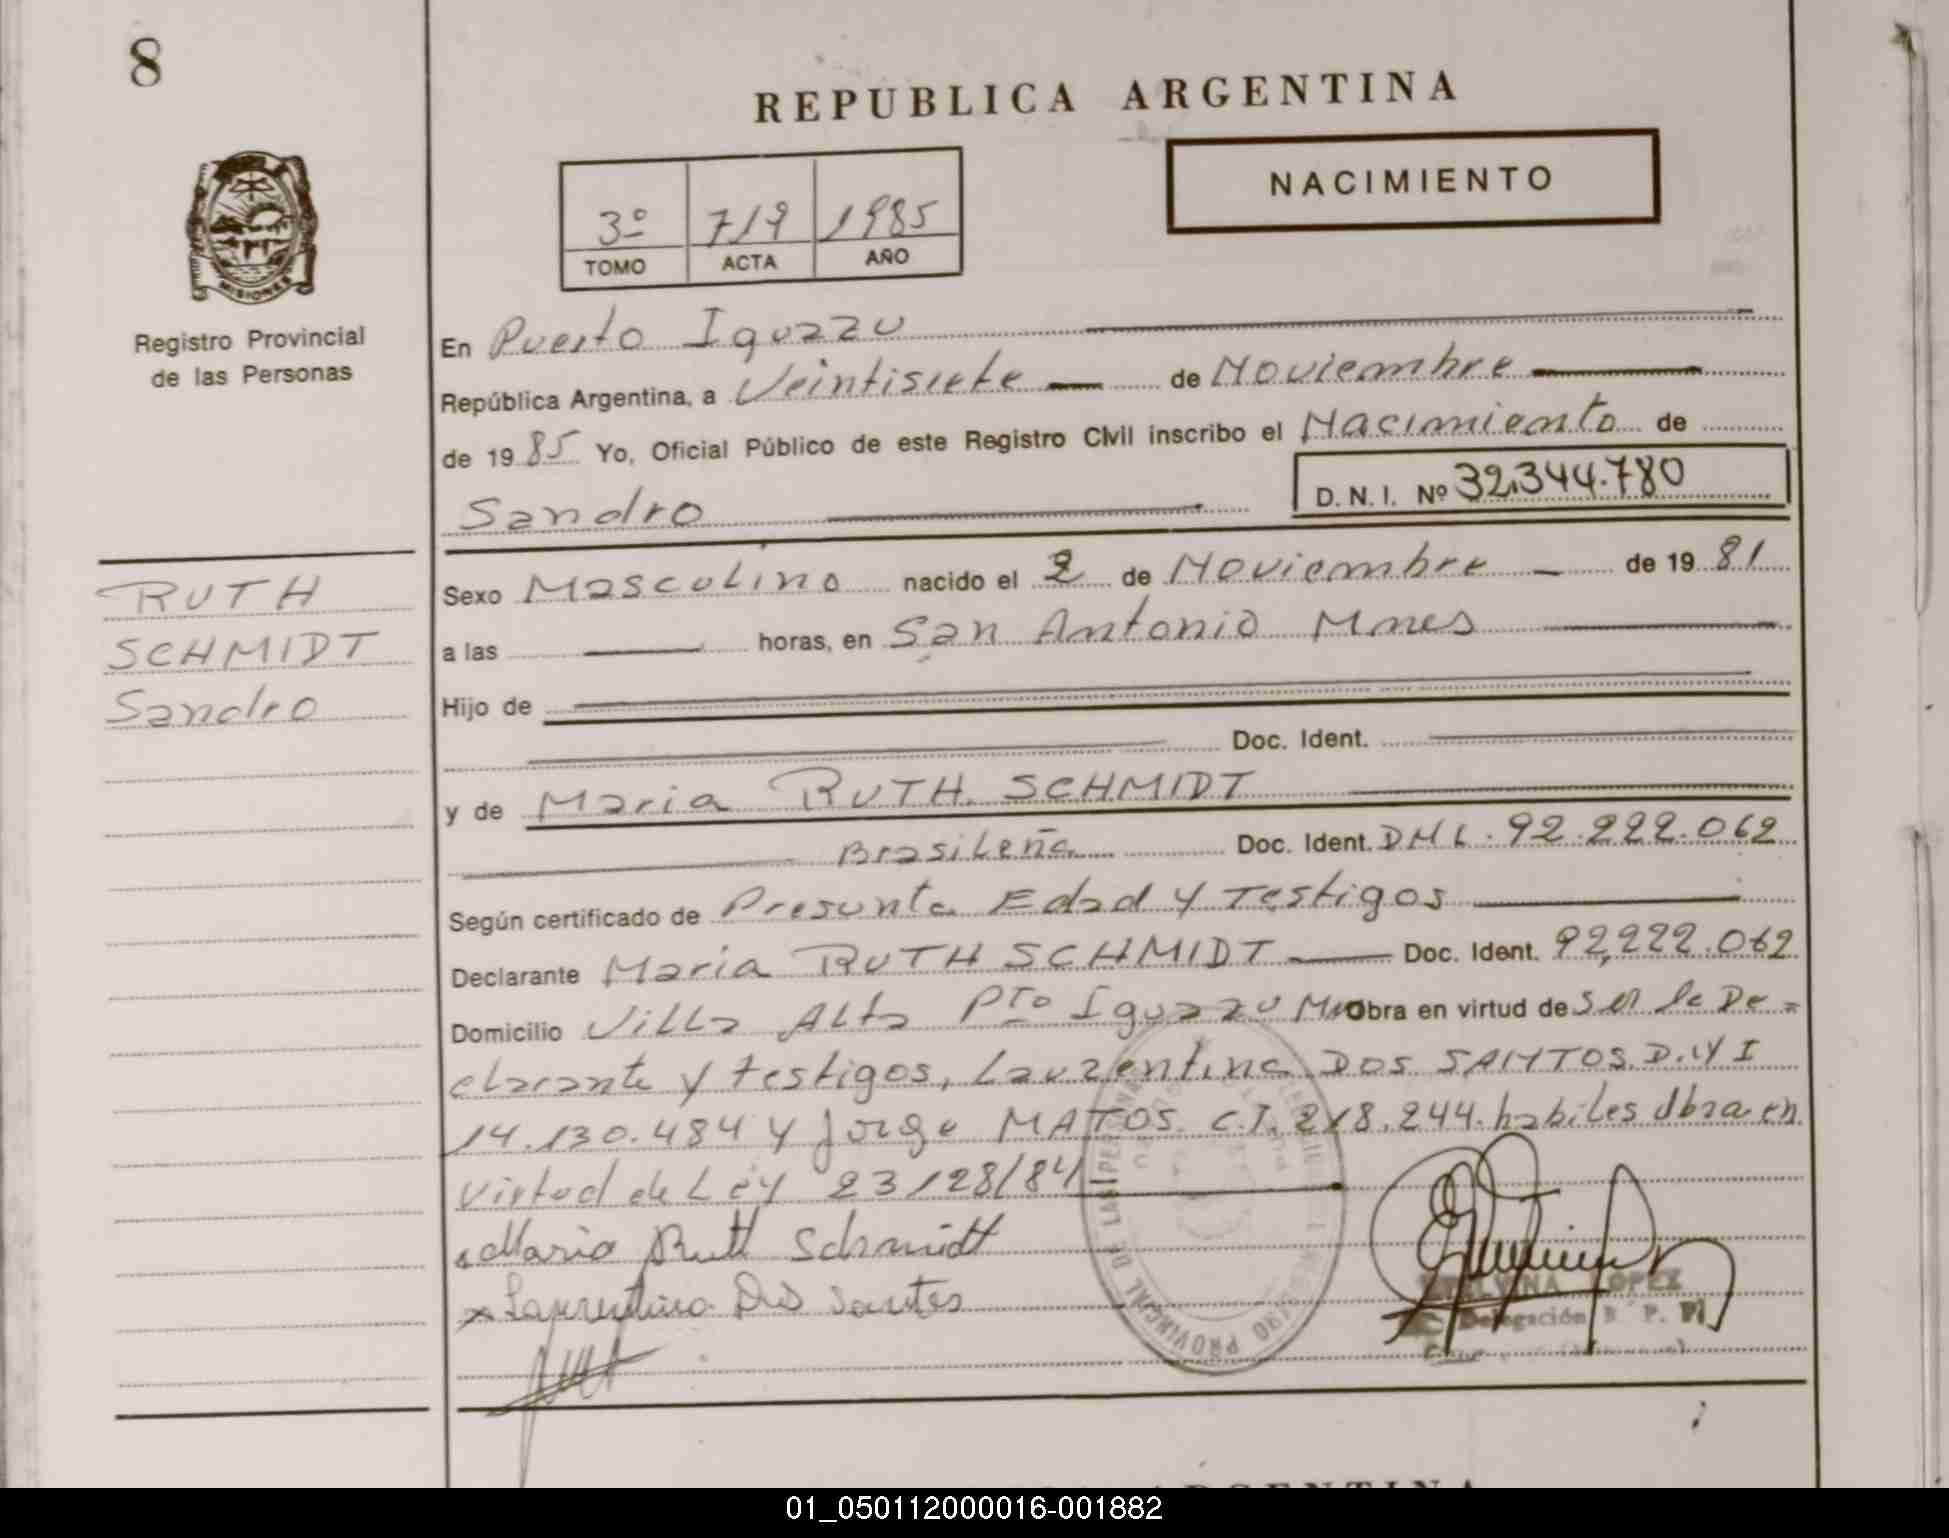 8
REPUBLICA ARGENTINA
NACIMIENTO
3º 719 1985
TOMO ACTA AÑO
MISIONES
Registro Provincial
de las Personas
En Puerto Iguazu
República Argentina, a Veintisiete de Noviembre
de 1985 Yo, Oficial Público de este Registro Civil inscribo el Nacimiento de
Sandro
D. N. I. Nº 32.344.780
RUTH
SCHMIDT
Sandro
Sexo Masculino nacido el 2 de Noviembre de 1981
a las horas, en San Antonio Mnes
Hijo de
Doc. Ident.
y de Maria RUTH SCHMIDT
Brasileña Doc. Ident. DNI. 92.222.062
Según certificado de Presunta Edad y Testigos
Declarante Maria RUTH SCHMIDT Doc. Ident. 92.222.062
Domicilio Villa Alta Pto Iguazu Obra en virtud de ser la De=
clarante y testigos, Laurentino DOS SANTOS D.N I
14.130.484 y Jorge MATOS C.I. 218.244. habiles Obra en
virtud de Ley 23128/84
Maria Ruth Schmidt
x Laurentino Dos Santos
LOPEZ
Delegación
PROVINCIAL DE LAS PERSONAS
01_050112000016-001882